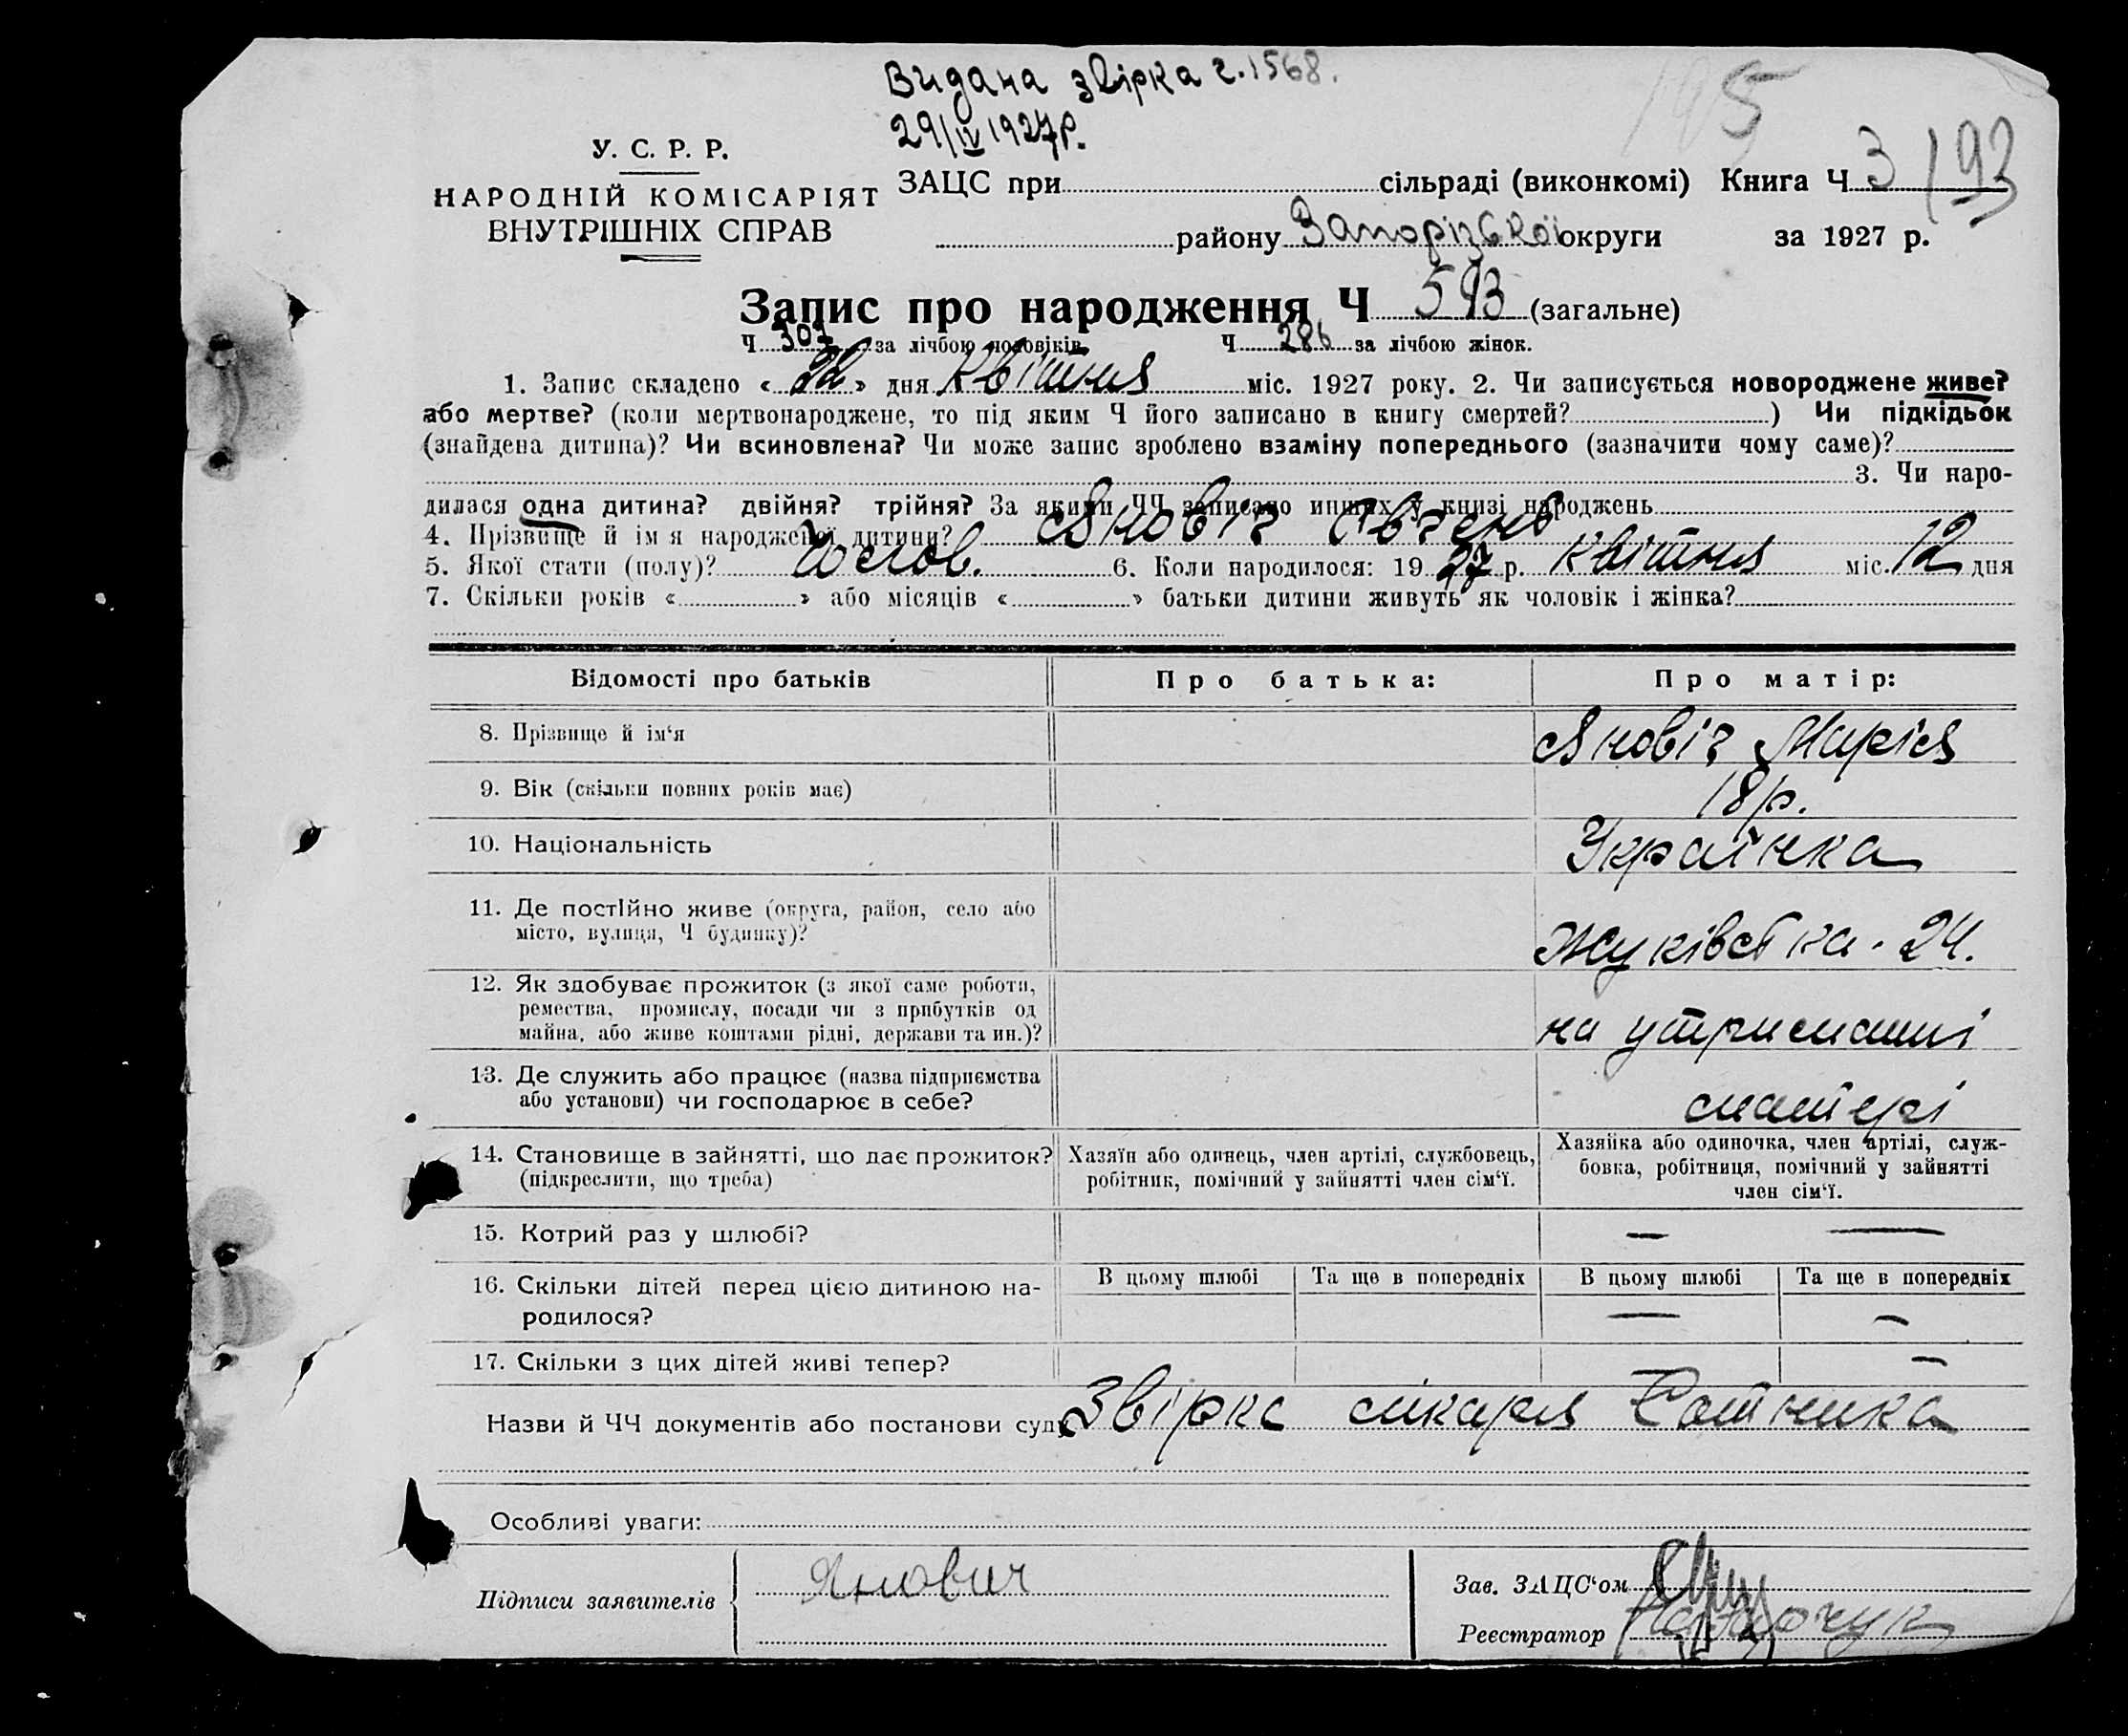 Видана звірка ч. 1568.
29/IV 1927 р.
5
193
У. С. Р. Р.
НАРОДНІЙ КОМІСАРІЯТ
ВНУТРІШНІХ СПРАВ
ЗАЦС при сільраді (виконкомі) Книга Ч 3
району Запорізької округи за 1927 р.
Запис про народження Ч 593 (загальне)
Ч 307 за лічбою чоловіків Ч 286 за лічбою жінок.
1. Запис складено « » дня Квітня міс. 1927 року. 2. Чи записується новороджене живе?
або мертве? (коли мертвонароджене, то під яким Ч його записано в книгу смертей? ) Чи підкідьок
(знайдена дитина)? Чи всиновлена? Чи може запис зроблено взаміну попереднього (зазначити чому саме)?
3. Чи наро-
дилася одна дитина? двійня? трійня? За якими ЧЧ записано инших у книзі народжень
4. Прізвище й ім я народженої дитини? Яновіч Євгень
5. Якої стати (полу)? Чолов. 6. Коли народилося: 1927 р. Квітня міс. 12 дня
7. Скільки років « » або місяців « » батьки дитини живуть як чоловік і жінка?
Відомості про батьків Про батька: Про матір:
8. Прізвище й ім‘я Яновіч Марія
9. Вік (скільки повних років має) 18 р.
10. Національність Українка
11. Де постійно живе (округа, район, село або
місто, вулиця, Ч будинку)? Жуківська. 24.
12. Як здобуває прожиток (з якої саме роботи,
ремества, промислу, посади чи з прибутків од
майна, або живе коштами рідні, держави та ин.)? на утриманні
13. Де служить або працює (назва підприємства
або установи) чи господарює в себе? матері
14. Становище в зайнятті, що дає прожиток?
(підкреслити, що треба)
Хазяїн або одинець, член артілі, службовець,
робітник, помічний у зайнятті член сім‘ї.
Хазяйка або одиночка, член артілі, служ-
бовка, робітниця, помічний у зайнятті
член сім‘ї.
15. Котрий раз у шлюбі? — —
16. Скільки дітей перед цією дитиною на-
родилося?
В цьому шлюбі Та ще в попередніх В цьому шлюбі Та ще в попередніх
— —
17. Скільки з цих дітей живі тепер? —
Назви й ЧЧ документів або постанови суду Звірка лікаря Сотника
Особливі уваги:
Підписи заявителів Янович
Зав. ЗАЦС‘ом
Реєстратор